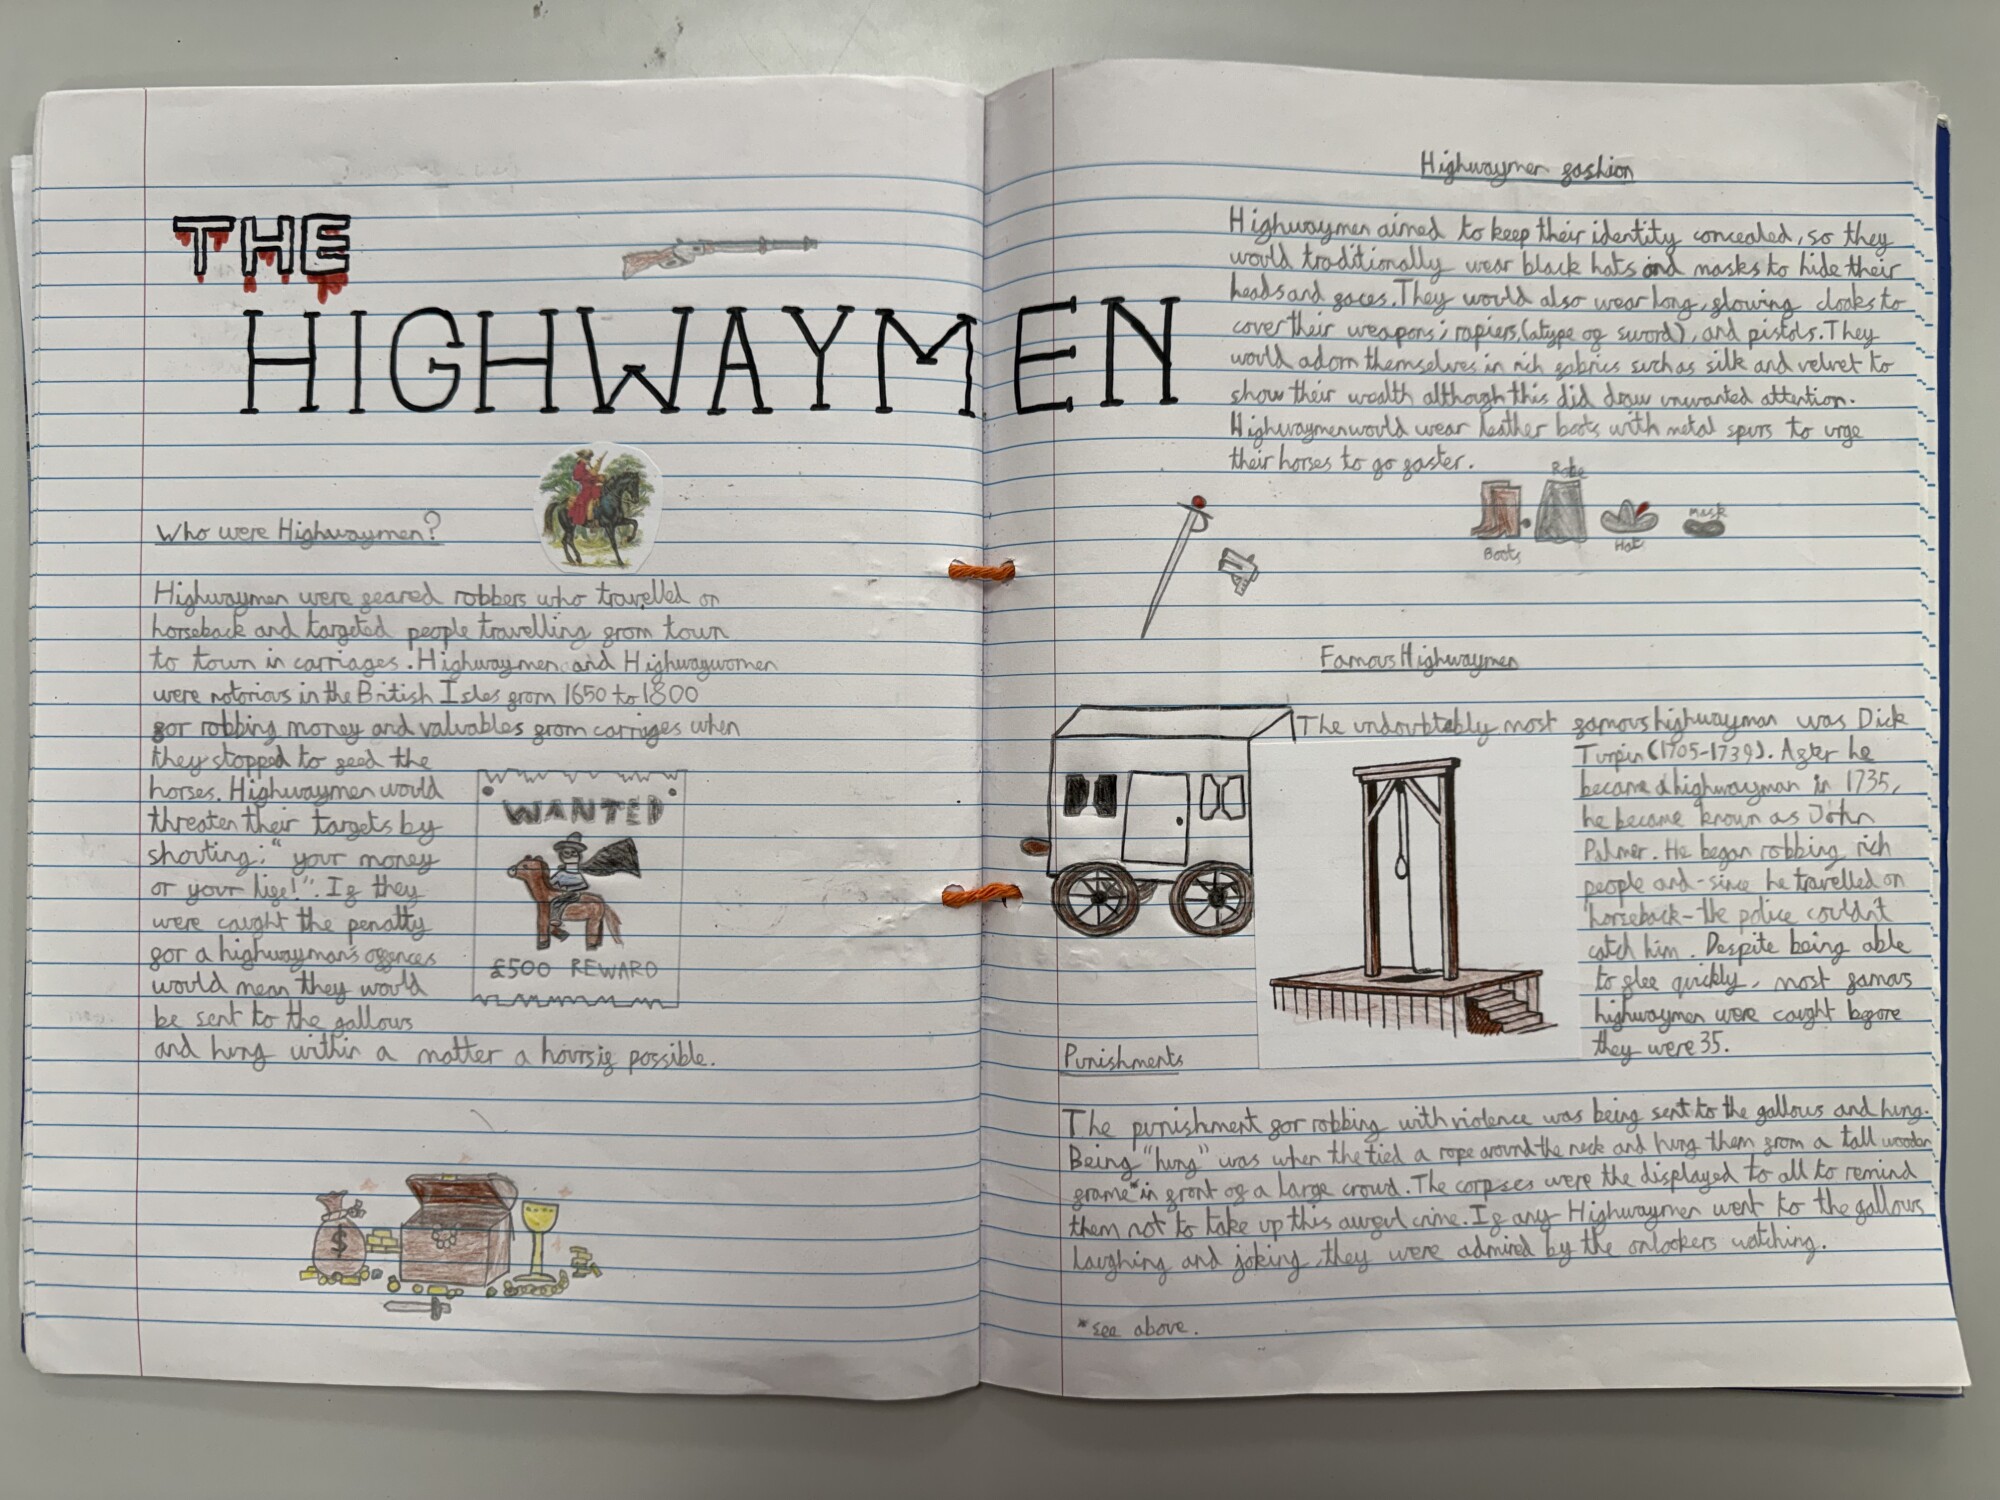 THE
HIGHWAYMEN
Who were Highwaymen?
Highwaymen were feared robbers who travelled on
horseback and targeted people travelling from town
to town in carriages. Highwaymen and Highwaywomen
were notorious in the British Isles from 1650 to 1800
for robbing money and valuables from carriages when
they stopped to feed the
horses. Highwaymen would
threaten their targets by
shouting: "your money
or your life!". If they
were caught the penalty
for a highwayman's offences
would mean they would
be sent to the gallows
and hung within a matter a hours if possible.
WANTED
£500 REWARD
$
Highwaymen fashion
Highwaymen aimed to keep their identity concealed, so they
would traditionally wear black hats and masks to hide their
heads and faces. They would also wear long, flowing cloaks to
cover their weapons; rapiers, (a type of sword), and pistols. They
would adorn themselves in rich fabrics such as silk and velvet to
show their wealth although this did draw unwanted attention.
Highwaymen would wear leather boots with metal spurs to urge
their horses to go faster.
Boots
Robe
Hat
mask
Famous Highwaymen
The undoubtably most famous highwayman was Dick
Turpin (1705-1739). After he
became a highwayman in 1735,
he became known as John
Palmer. He began robbing rich
people and - since he travelled on
horseback - the police couldn't
catch him. Despite being able
to flee quickly, most famous
highwaymen were caught before
they were 35.
Punishments
The punishment for robbing with violence was being sent to the gallows and hung.
Being "hung" was when the tied a rope around the neck and hung them from a tall wooden
frame* in front of a large crowd. The corpses were the displayed to all to remind
them not to take up this awful crime. If any Highwaymen went to the gallows
laughing and joking, they were admired by the onlookers watching.
*see above.